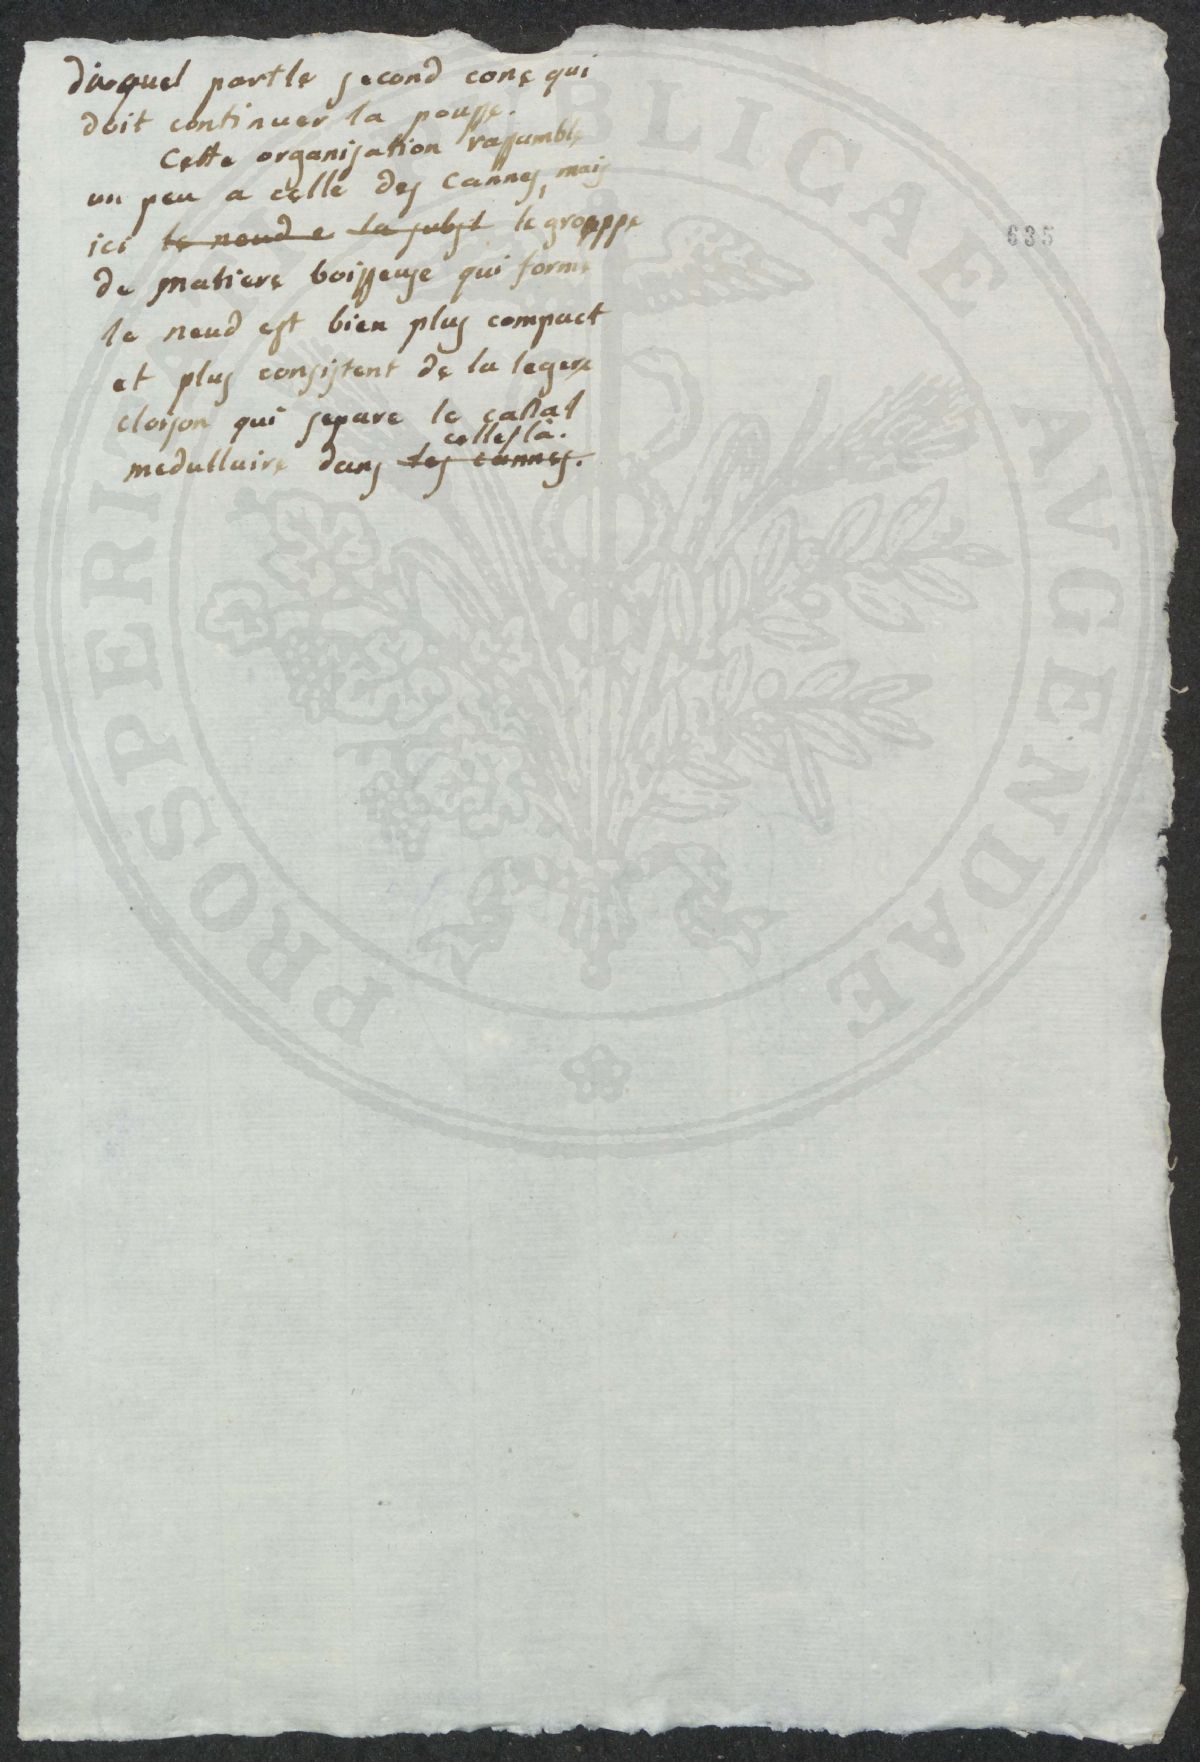 duquel part le second cone qui
doit continuer la pousse.
Cette organisation rassemble
un peu a celle des Cannes, mais
ici le neud e la subst le grouppe
635
de matiere boisseuse qui forme
le neud est bien plus compact
et plus consistent de la legere
cloison qui separe le canal
celles là.
medullaire dans les cannes.
PROSPERITATI PUBLICAE AVGENDAE